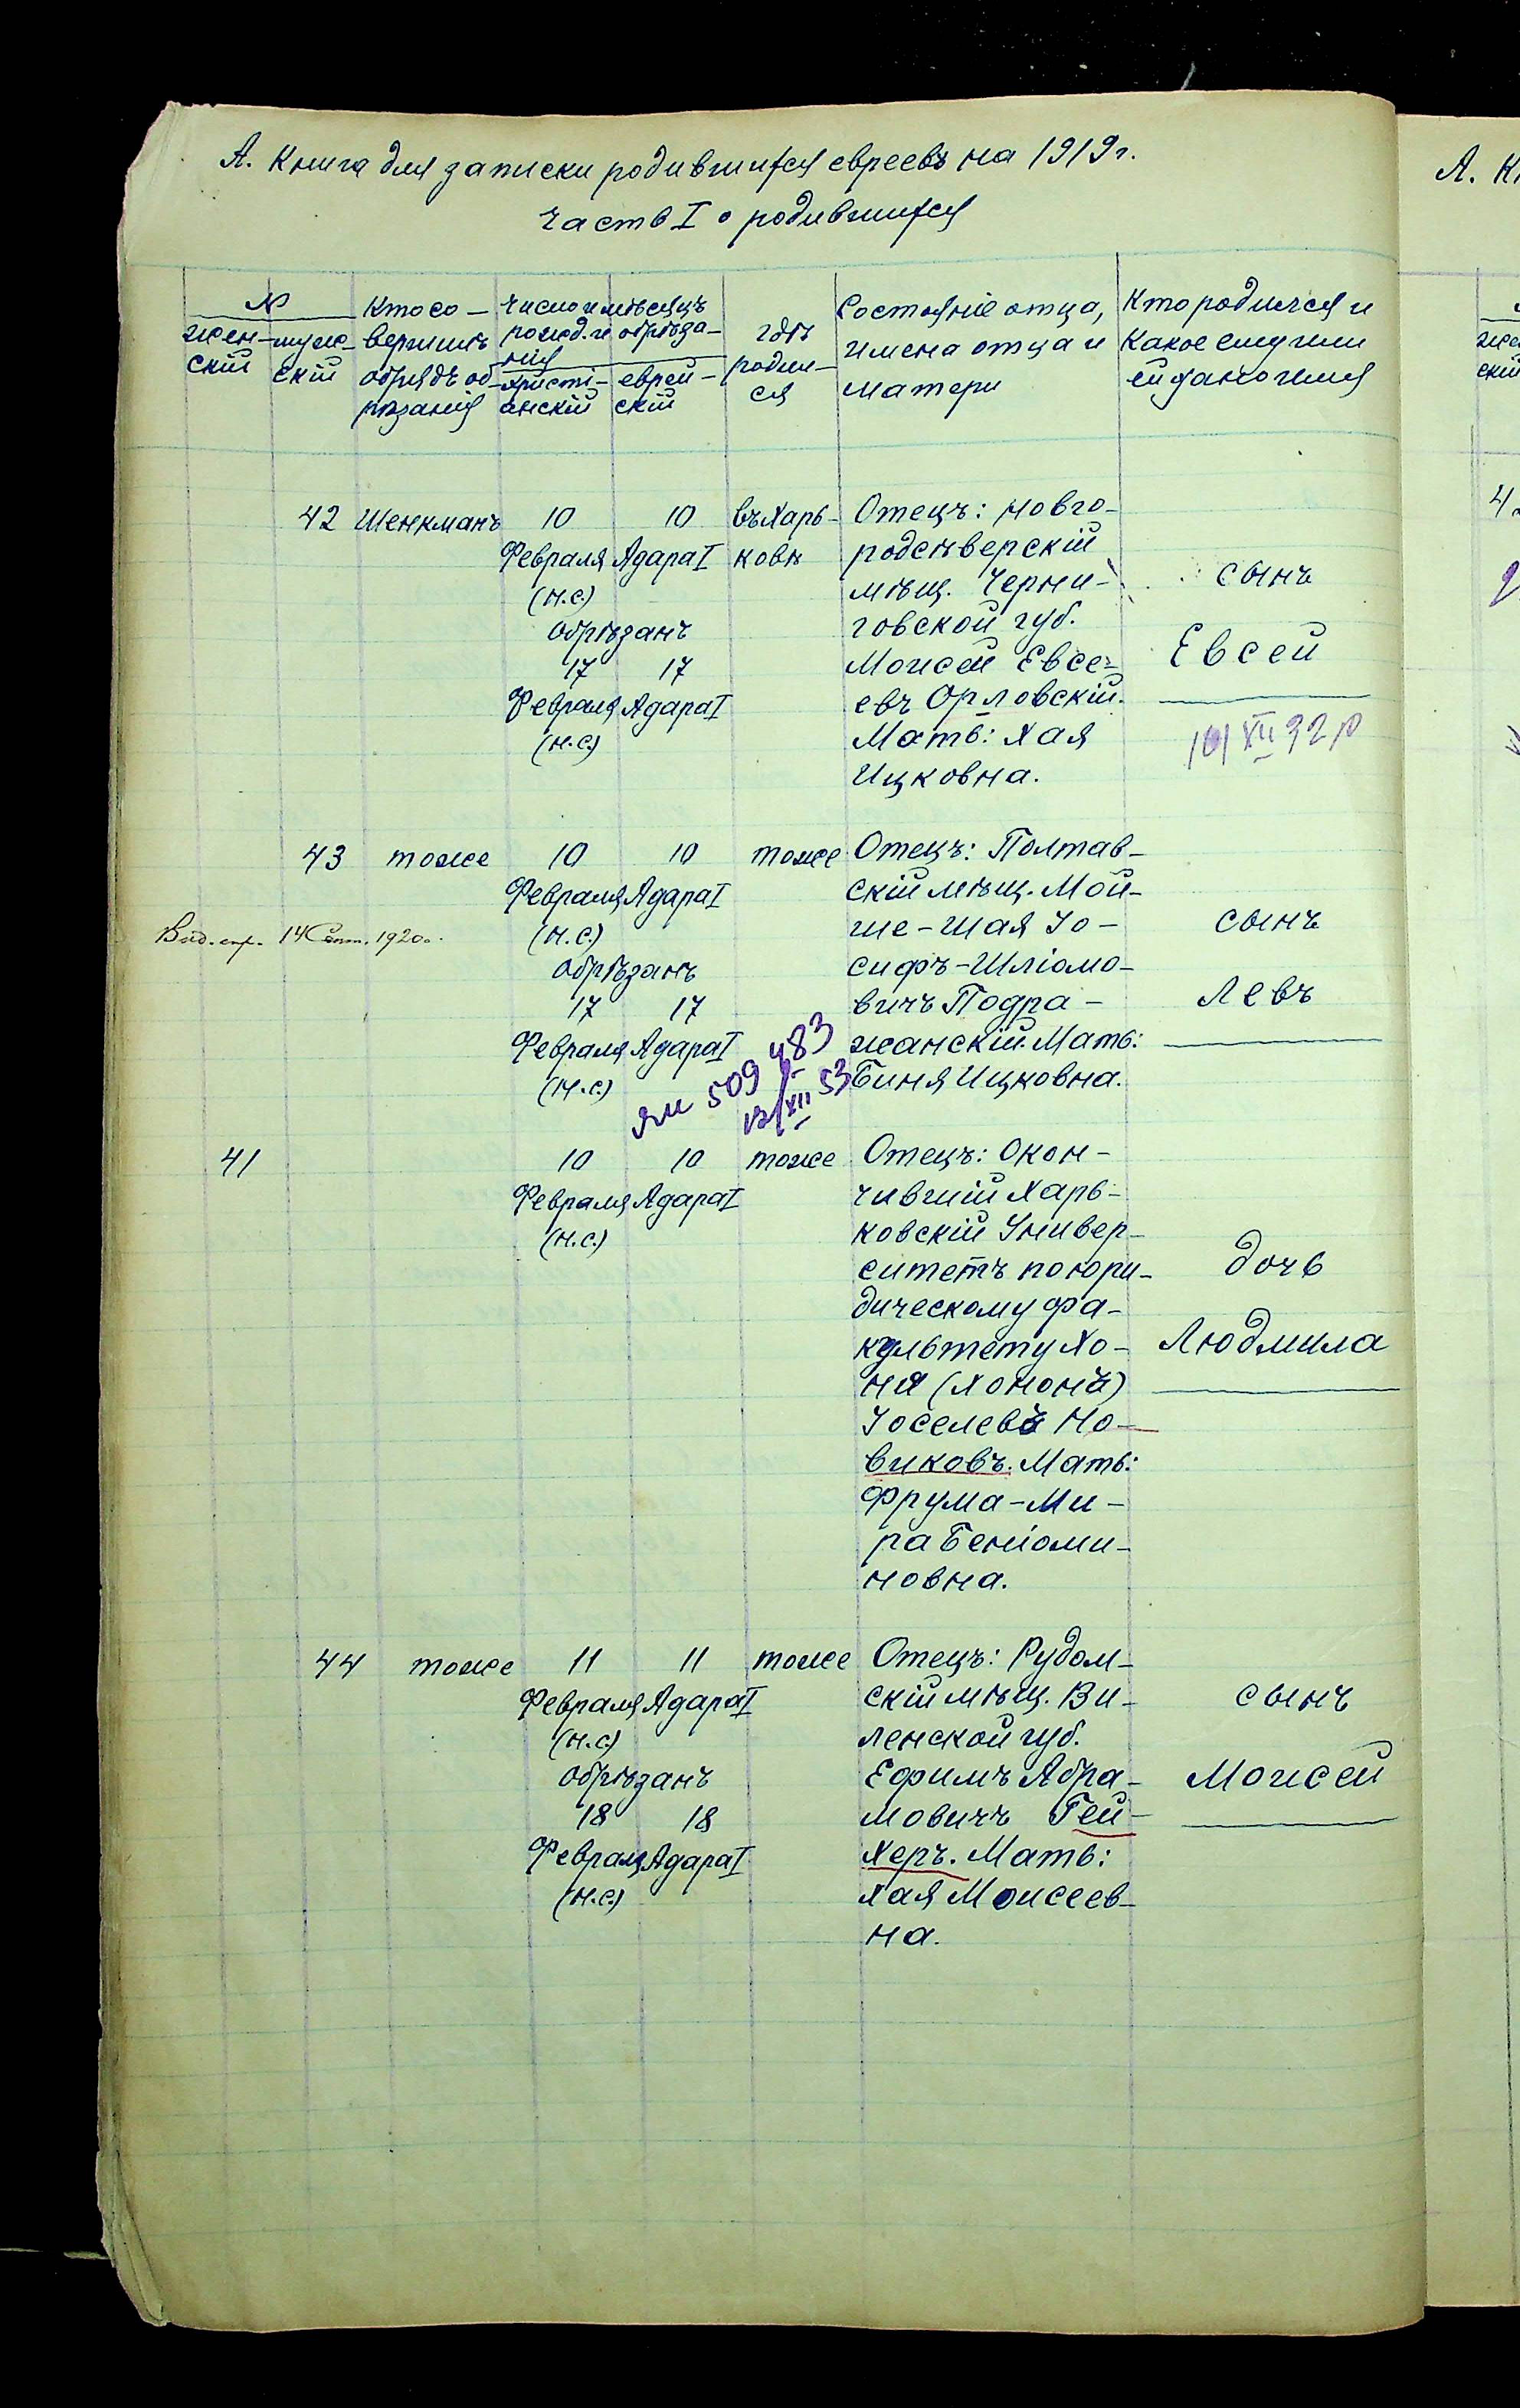 А. Книга для записки родившихся евреевъ на 1919 г.
Часть I о родившихся
№
жен-
скій
муж-
скій
Кто со-
вершилъ
обрядъ об-
рѣзанія
Число и мѣсяцъ
рожд. и обрѣза-
нія
христі-
анскій
еврей-
скій
гдѣ
родил-
ся
Состояніе отца,
имена отца и
матери
Кто родился и
какое ему или
ей дано имя
42
Шенкманъ
10
Февраля
(н.с.)
10
Адара I
Обрѣзанъ
17
Февраля
(н.с.)
17
Адара I
въ Харь-
ковѣ
Отецъ: новго-
родсѣверскій
мѣщ. Черни-
говской губ.
Моисей Евсе-
евъ Орловскій.
Мать: Хая
Ицковна.
сынъ
Евсей
43
тоже
10
Февраля
(н.с.)
10
Адара I
Обрѣзанъ
17
Февраля
(н.с.)
17
Адара I
тоже
Отецъ: Полтав-
скій мѣщ. Мой-
ше-Шая Іо-
сифъ-Шліомо-
вичъ Подра-
жанскій. Мать:
Биня Ицковна.
сынъ
Левъ
14 Сент. 1920 г.
509483
12/XII 53
41
10
Февраля
(н.с.)
10
Адара I
тоже
Отецъ: Окон-
чившій Харь-
ковскій Универ-
ситетъ по юри-
дическому фа-
культету Хо-
ня (Хонона)
Іоселевъ Но-
виковъ. Мать:
Фрума-Ми-
ра Беніоми-
новна.
дочь
Людмила
44
тоже
11
Февраля
(н.с)
11
Адара I
Обрѣзанъ
18
Февраля
(н.с.)
18
Адара I
тоже
Отецъ: Рудом-
скій мѣщ. Ви-
ленской губ.
Ефимъ Абра-
мовичъ Гей-
херъ. Мать:
Хая Моисеев-
на.
сынъ
Моисей
А.